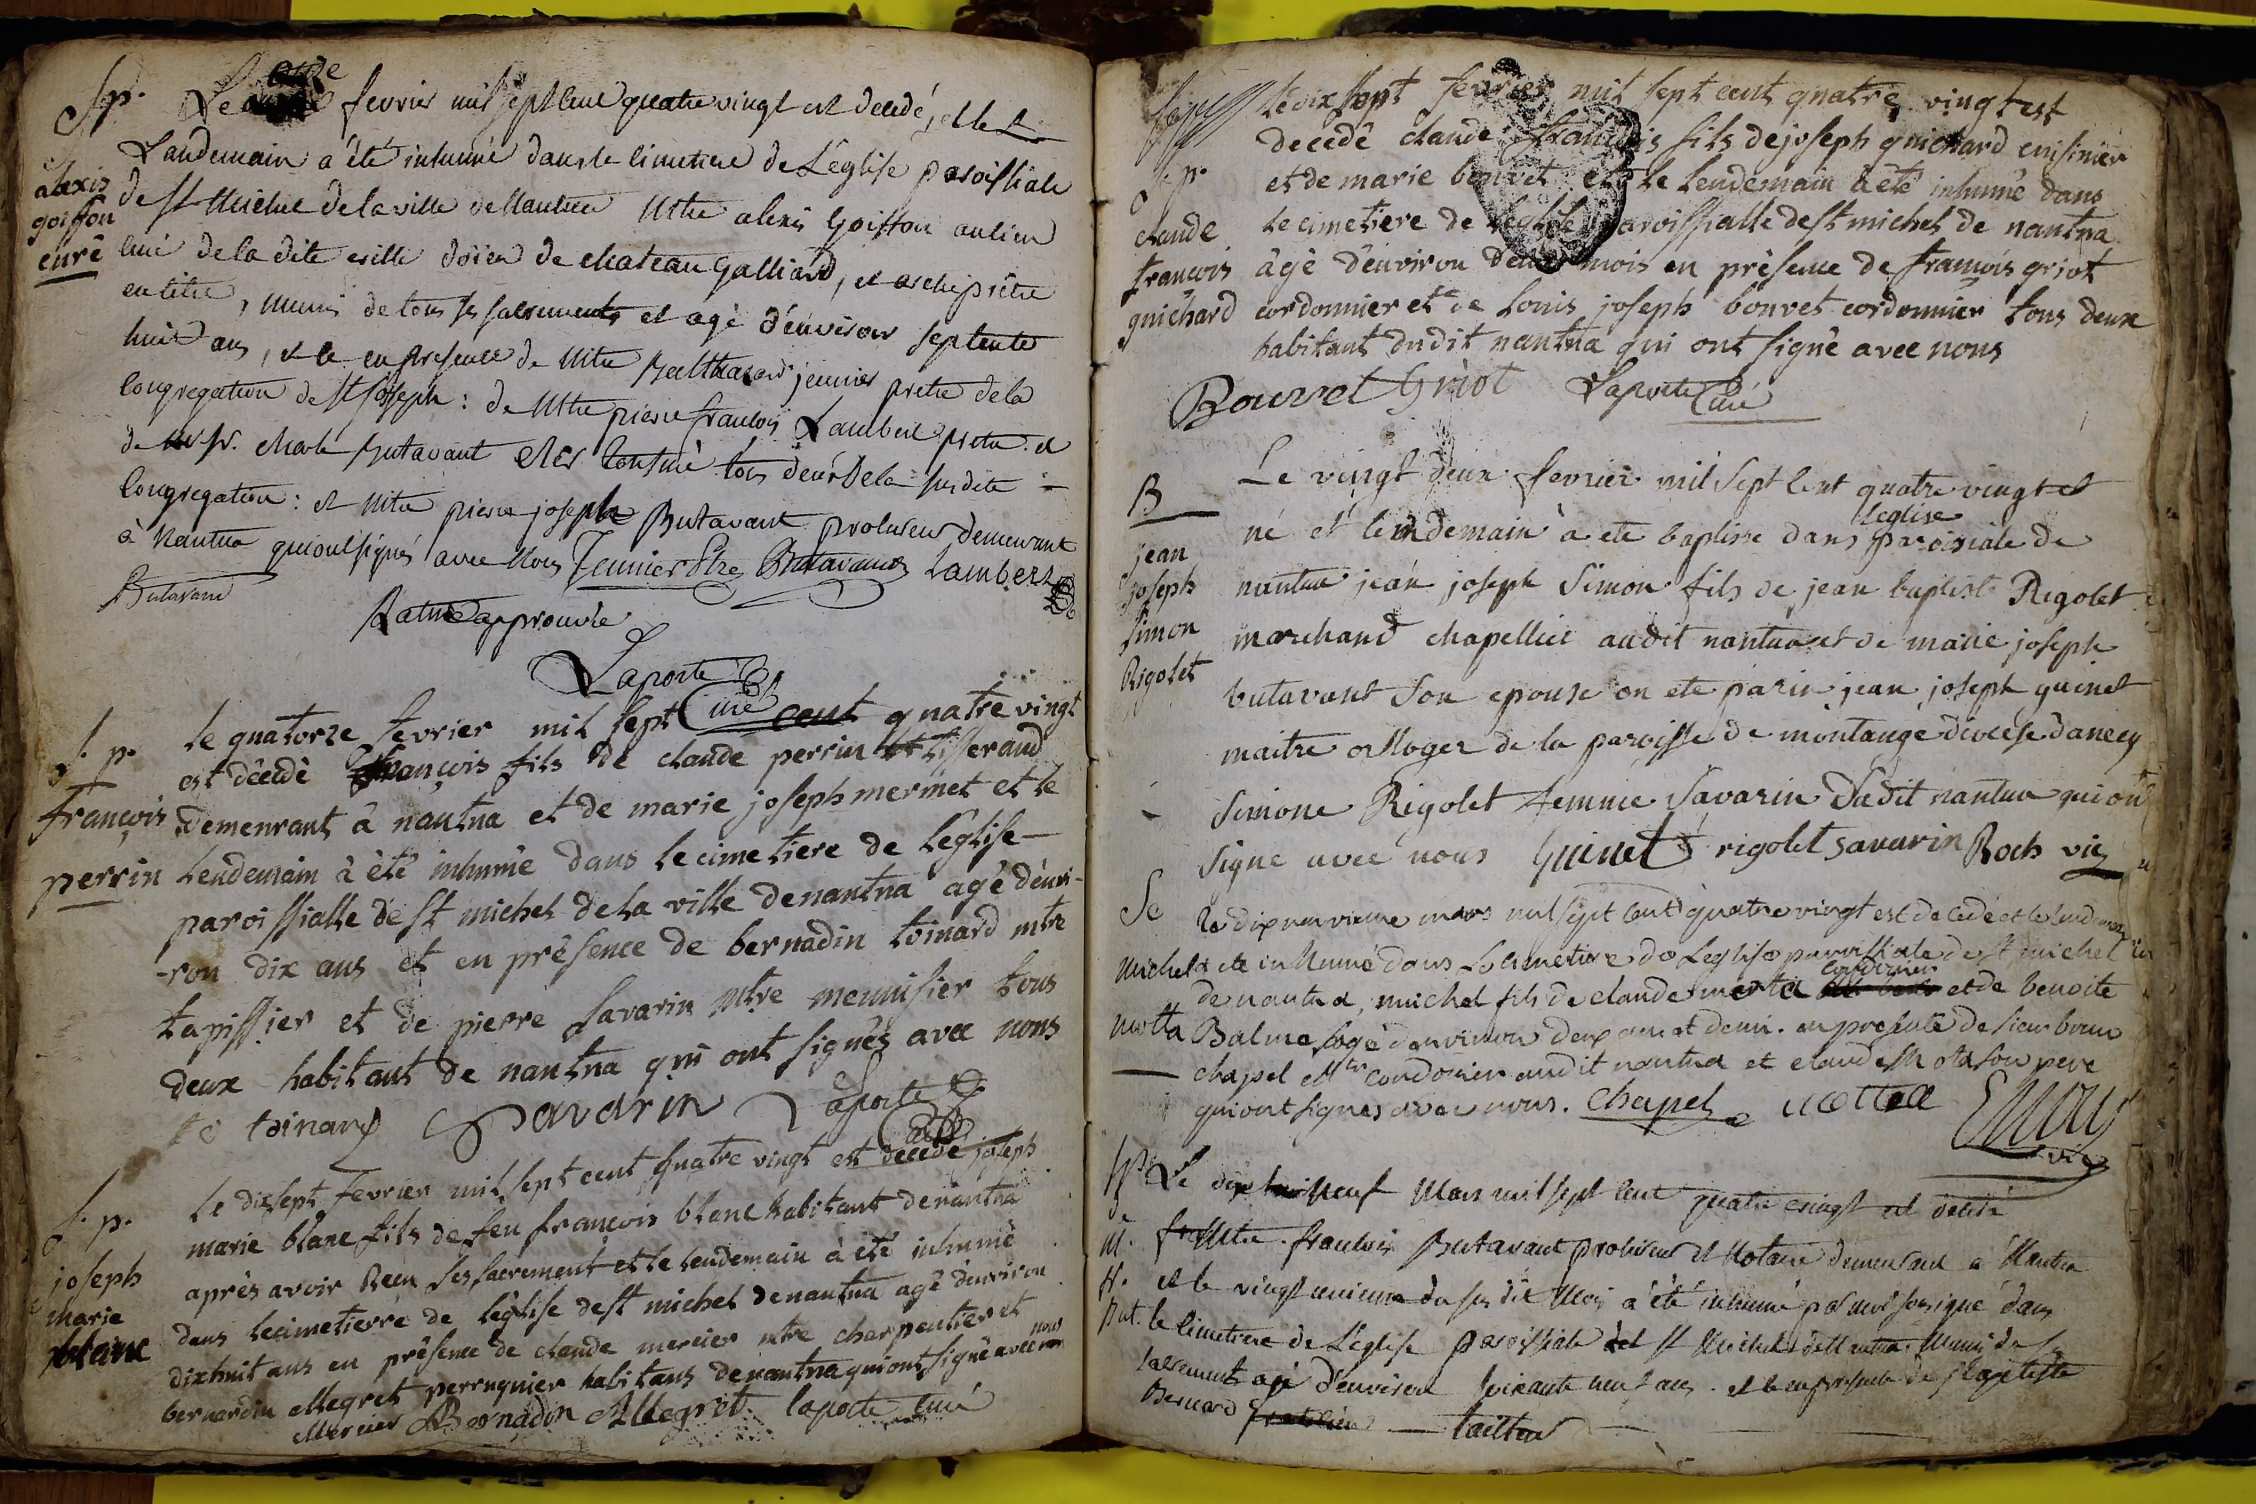 onze
Sp. Le fevrier mil sept cent quatre vingt est decedé, et le
Landemain a été inhumé dans le cimetiere de L'eglise paroissiale
alexis
goiffon
curé
de St Michel de la ville de Nantua Mtre alexis Goiffon ancien
curé de la dite ville doien de chateau Galliard, et archiprêtre
en titre, muni de tous ses sacrements et agé d'environ septente
huit ans, et ce en presence de Mtre Balthazard jeunier pretre de la
Congregation de St Joseph : de Mtre pierre francois Lambert pretre et
de Sr. charle Butavant clerc tonsuré tous deux de la susdite
Congregation : et Mtre pierre joseph Butavant procureur demeurant
à Nantua qui ont signés avec Nous Jeunier Ptre Butavand Lambert
Butavand
Rature approuvée
Laporte
Curé
S. p. le quatorze fevrier mil sept cent quatre vingt
est dêcêdê françois fils de claude perrin tisserand
françois
perrin
demeurant â nantua et de marie joseph mermet et le
lendemain â êtê inhumê dans le cimetiere de l'êglise
paroissialle de st michel de la ville de nantua agê d'envi-
-ron dix ans et en prêsence de bernadin toinard mtre
tapissier et de pierre Savarin mtre menuisier tous
deux habitant de nantua qui ont signês avec nous
toinard Savarin Laporte
curé
S. p. le dixsept fevrier mil sept cent quatre vingt est decede joseph
marie blanc fils de feu françois blanc habitant de nantua
joseph
marie
blanc
après avoir Reçu ses sacrement et le lendemain â êtê inhumê
dans le cimetierre de l'êglise de st michel de nantua agê d'environ
dixhuit ans en prêsence de claude mercier mtre charpentier et
bernardin allegret perruquier habitans de nantua qui ont signê avec nous
Mercier Bernadin Allegret laporte curé
Le dix sept fevrier mil sept cent quatre vingt est
decedê claude françois fils de joseph guichard cuisinier
S. p.
claude
françois
guichard
et de marie bouvet et le lendemain â êtê inhumê dans
le cimetiere de l'eglise paroissialle de st michel de nantua
âgê d'environ deux mois en prêsence de françois griot
cordonnier et de Louis joseph bouvet cordonnier tous deux
habitant dudit nantua qui ont signê avec nous
Bouvet Griot Laporte Curé
B
jean
joseph
simon
Rigolet
Le vingt deux fevrier mil sept cent quatre vingt est
né et lendemain a ete baptisse dans l'eglise paroisiale de
nantua jean joseph Simon fils de jean baptiste Rigolet
marchand chapellier audit nantua et de marie joseph
butavant son epouse on ete parin jean joseph guinet
maitre orloger de la paroisse de montange diocese danecy
Simone Rigolet femme Savarin dudit nantua qui on
signe avec nous Guinet rigolet Savarin Roch vic
Se le dix neuvieme mars mil sept cent quatre vingt est decedé et le lendemain
michel
motta
a ete inhumé dans le cimetiere de l'eglise paroissiale de st michel
de nantua, michel fils de claude motta cordonnier et de benoite
Balme agé d'environ deux ans et demi. en presence de sieur
chapel Mtre cordonier audit nantua et claude Mota son pere
qui ont signes avec nous. Chapel motta
vic
Sp. Le dix neuf Mars mil sept cent quatre vingt est décédé
M.
f.
But.
Mtre francois Butavant procureur et Notaire demeurant a Nantua
et le vingt unieme du sus dit Mois à été inhumé par moi soussigné dans
le Cimetiere de L'eglise paroissiale de St Michel de Nantua Muni de ses
sacrements agé d'environ soixante neuf ans. et ce en presence de Baptiste
Bernard tailleur